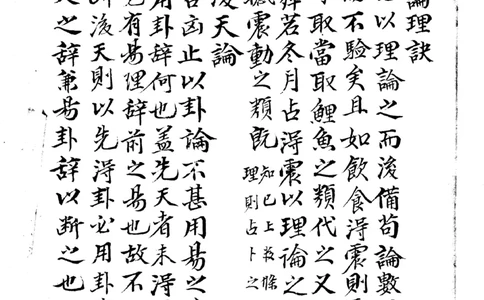 論理訣
以理論之而後備苟論數
不驗矣且如飲食得震則
取當取鯉魚之類代之又
若冬月占得震以理論之
撼震動之類既
知已上數條
理則占卜之
後天論
吉凶止以卦論不甚用易之
用卦辭何也蓋先天者未得
有易理辭前之易也故不
後天則以先得卦必用卦
之辭兼易卦辭以斷之也